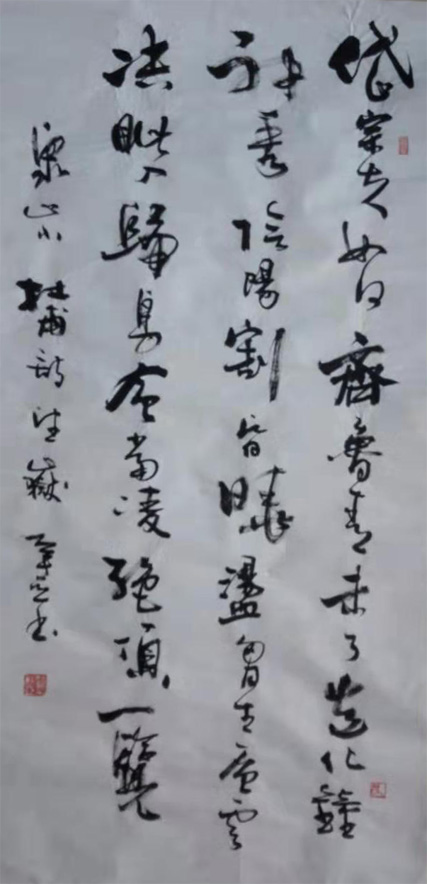 岱宗夫如何齊魯青未了造化鍾
神秀陰陽割昏曉盪胸生層雲
決眦入歸鳥會當凌絶頂一覽
衆山小 杜甫詩望嶽 書